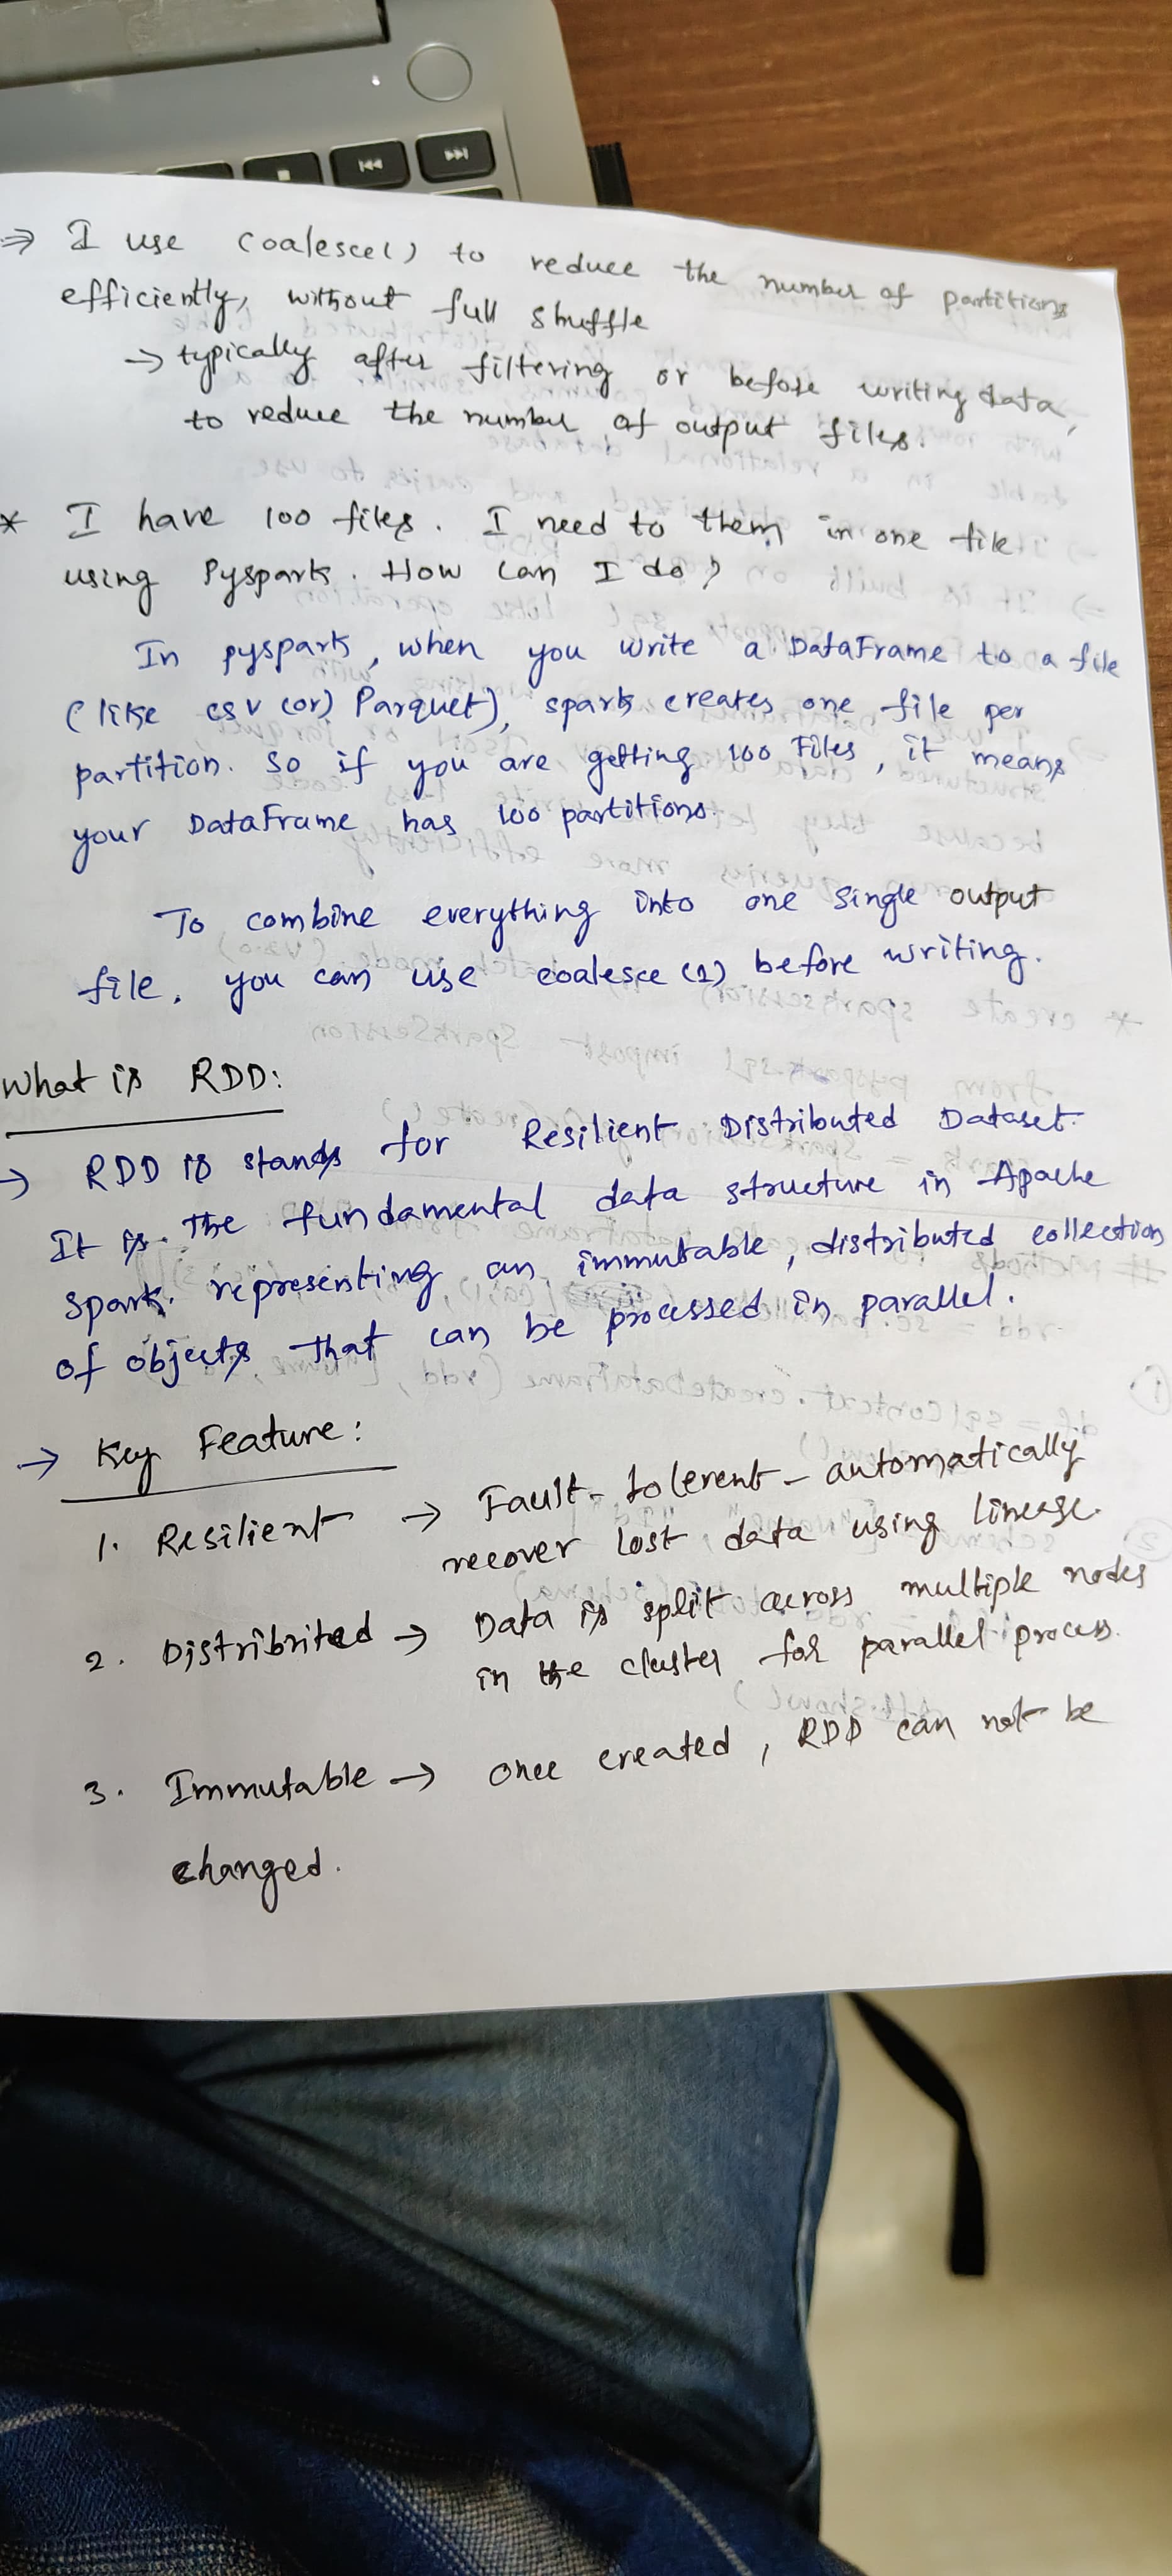 ⇒ I use coalesce() to reduce the number of partitions
efficiently, without full shuffle
→ typically after filtering or before writing data,
to reduce the number of output files.
* I have 100 files. I need to them in one file
using Pyspark. How can I do?
In pyspark, when you write a DataFrame to a file
(like csv (or) Parquet), spark creates one file per
partition. So if you are getting 100 Files, it means
your DataFrame has 100 partitions.
To combine everything into one single output
file, you can use coalesce (1) before writing.
What is RDD:
→ RDD is stands for Resilient Distributed Dataset.
It is. The fundamental data structure in Apache
Spark. representing an immutable, distributed collection
of objects that can be processed in parallel.
→ Key Feature:
1. Resilient → Fault-tolerent - automatically
recover lost data using lineage.
2. Distribrited → Data is split across multiple nodes
in the cluster for parallel process.
3. Immutable → once created, RDD can not be
changed.